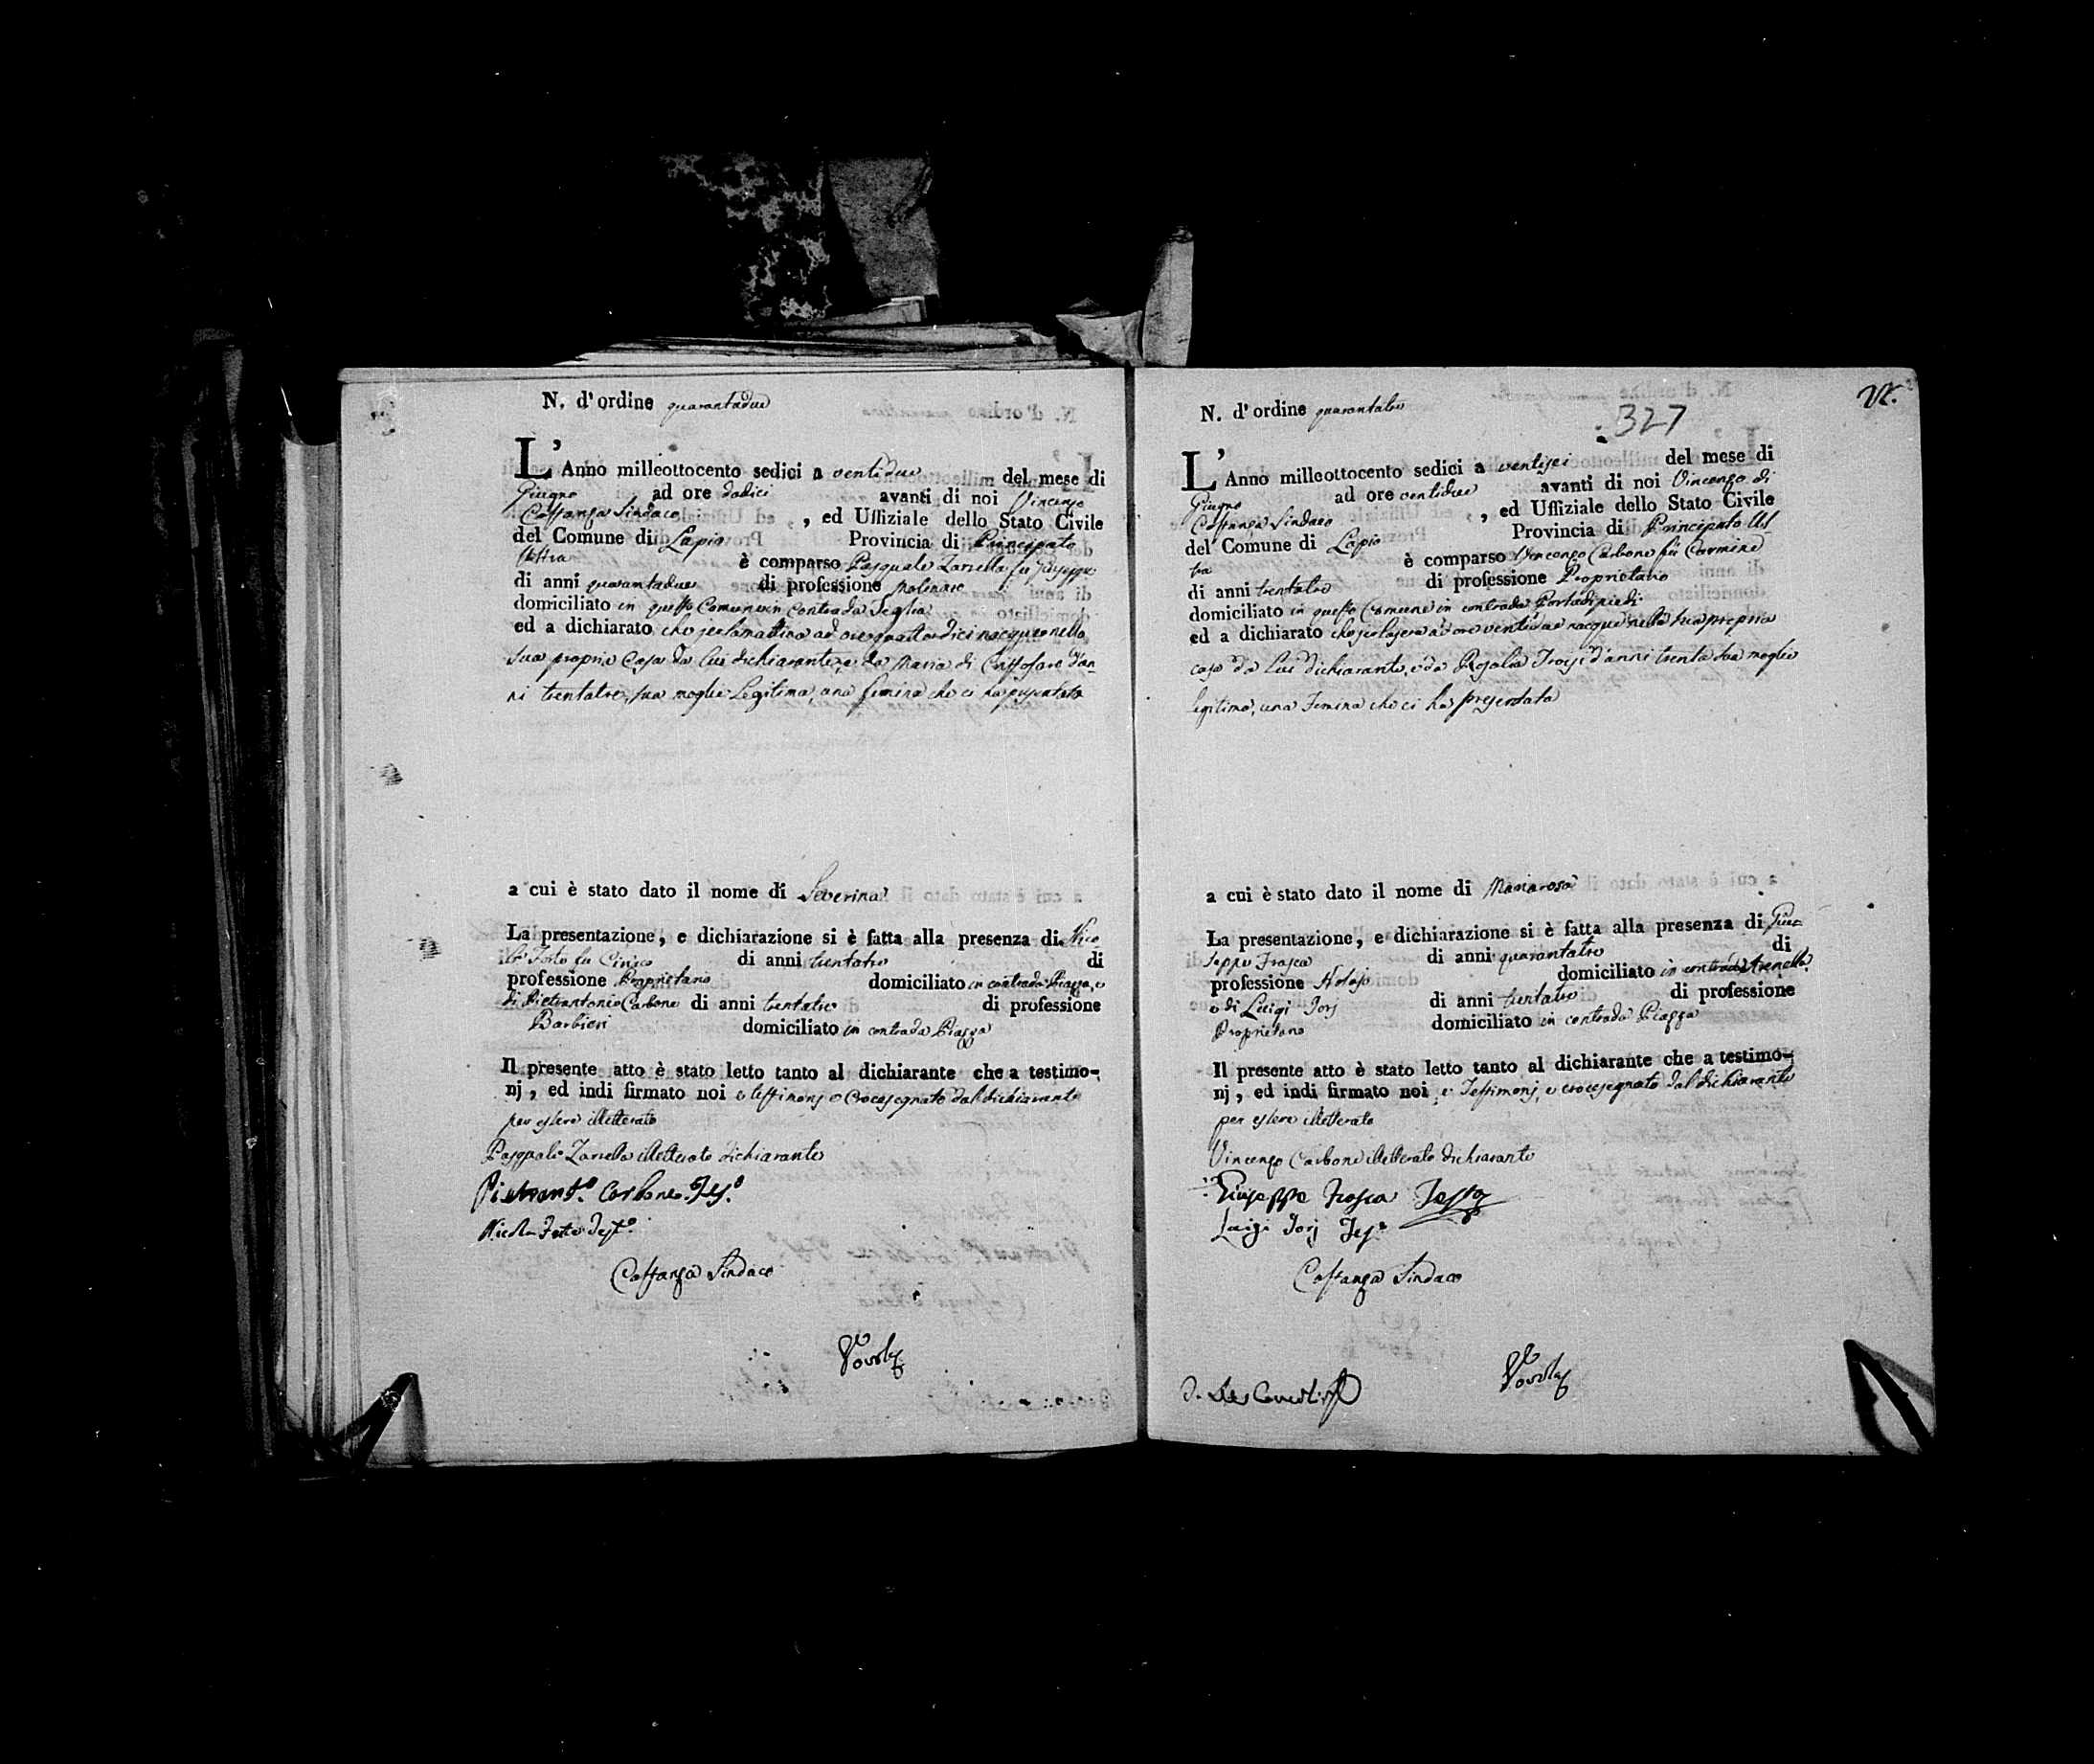 N. d'ordine quarantadue
L'Anno milleottocento sedici a ventidue del mese di
Giugno ad ore dodici avanti di noi Vincenzo
Costanza Sindaco, ed Uffiziale dello Stato Civile
del Comune di Lapio Provincia di Principato
Ultra è comparso Pasquale Zarrella fu Giuseppe
di anni quarantadue di professione Molinaro
domiciliato in questo Comune in contrada Seglia
ed a dichiarato che jerlamattina ad ore quattordici nacque nella
sua propria Casa da lui dichiarante, e da Maria di Cristofaro d'an-
ni trentatre, sua moglie Legitima, una femina che ci ha presentata
a cui è stato dato il nome di Severina
La presentazione, e dichiarazione si è fatta alla presenza di Nico-
la Forte fu Ciriaco di anni trentatre di
professione Proprietario domiciliato in contrada Piazza, e
di Pietrantonio Carbone di anni trentatre di professione
Barbieri domiciliato in contrada Piazza
Il presente atto è stato letto tanto al dichiarante che a testimo-
nj, ed indi firmato noi e testimonj e Crocesegnato dal dichiarante
per essere illetterato
Pasquale Zarrella illetterato dichiarante
Pietrant.o Carbone Tes.o
Nicola Forte Test.o
Costanza Sindaco
N. d'ordine quarantatre
327
L'Anno milleottocento sedici a ventisei del mese di
Giugno ad ore ventidue avanti di noi Vincenzo di
Costanza Sindaco, ed Uffiziale dello Stato Civile
del Comune di Lapio Provincia di Principato Ul-
tra è comparso Vincenzo Carbone fu Carmine
di anni trentatre di professione Proprietario
domiciliato in questo Comune in contrada Portadipiedi
ed a dichiarato che jerlasera ad ore ventidue nacque nella sua propria
casa da lui dichiarante, e da Rosalia Troisi d'anni trenta sua moglie
legitima, una Femina che ci ha presentata
a cui è stato dato il nome di Mariarosa
La presentazione, e dichiarazione si è fatta alla presenza di Giu-
seppe Frasca di anni quarantatre di
professione Notajo domiciliato in contrada Arenella,
e di Luigi Jorj di anni trentatre di professione
Proprietario domiciliato in contrada Piazza
Il presente atto è stato letto tanto al dichiarante che a testimo-
nj, ed indi firmato noi, e Testimonj, e crocesegnato dal dichiarante
per essere illetterato
Vincenzo Carbone illetterato dichiarante
Giuseppe Frasca Testo
Luigi Jorj Tes.o
Costanza Sindaco